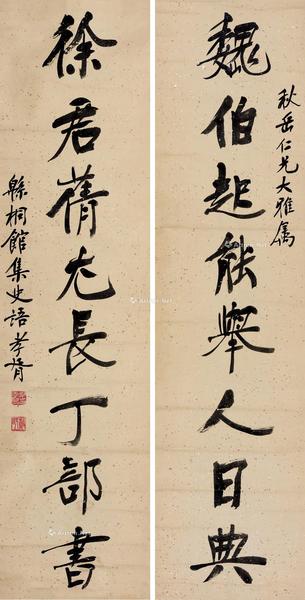 秋岳仁兄大雅属
魏伯起能舉人日典
徐君蒨尤長丁部書
緜桐館集史語孝胥